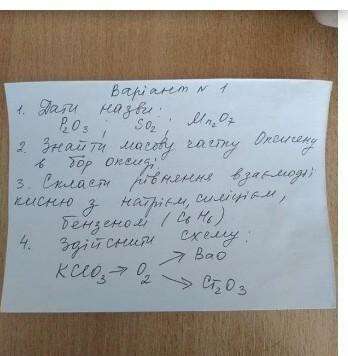 Варіант № 1
1. Дати назви:
P₂O₃ ; SO₂ ; Mn₂O₇
2. Знайти масову частку Оксигену
в бор оксиді
3. Скласти рівняння взаємодії
кисню з натрієм, силіцієм,
бензеном (C₆H₆)
4. Здійснити схему:
→ BaO
KClO₃ → O₂
→ Cr₂O₃